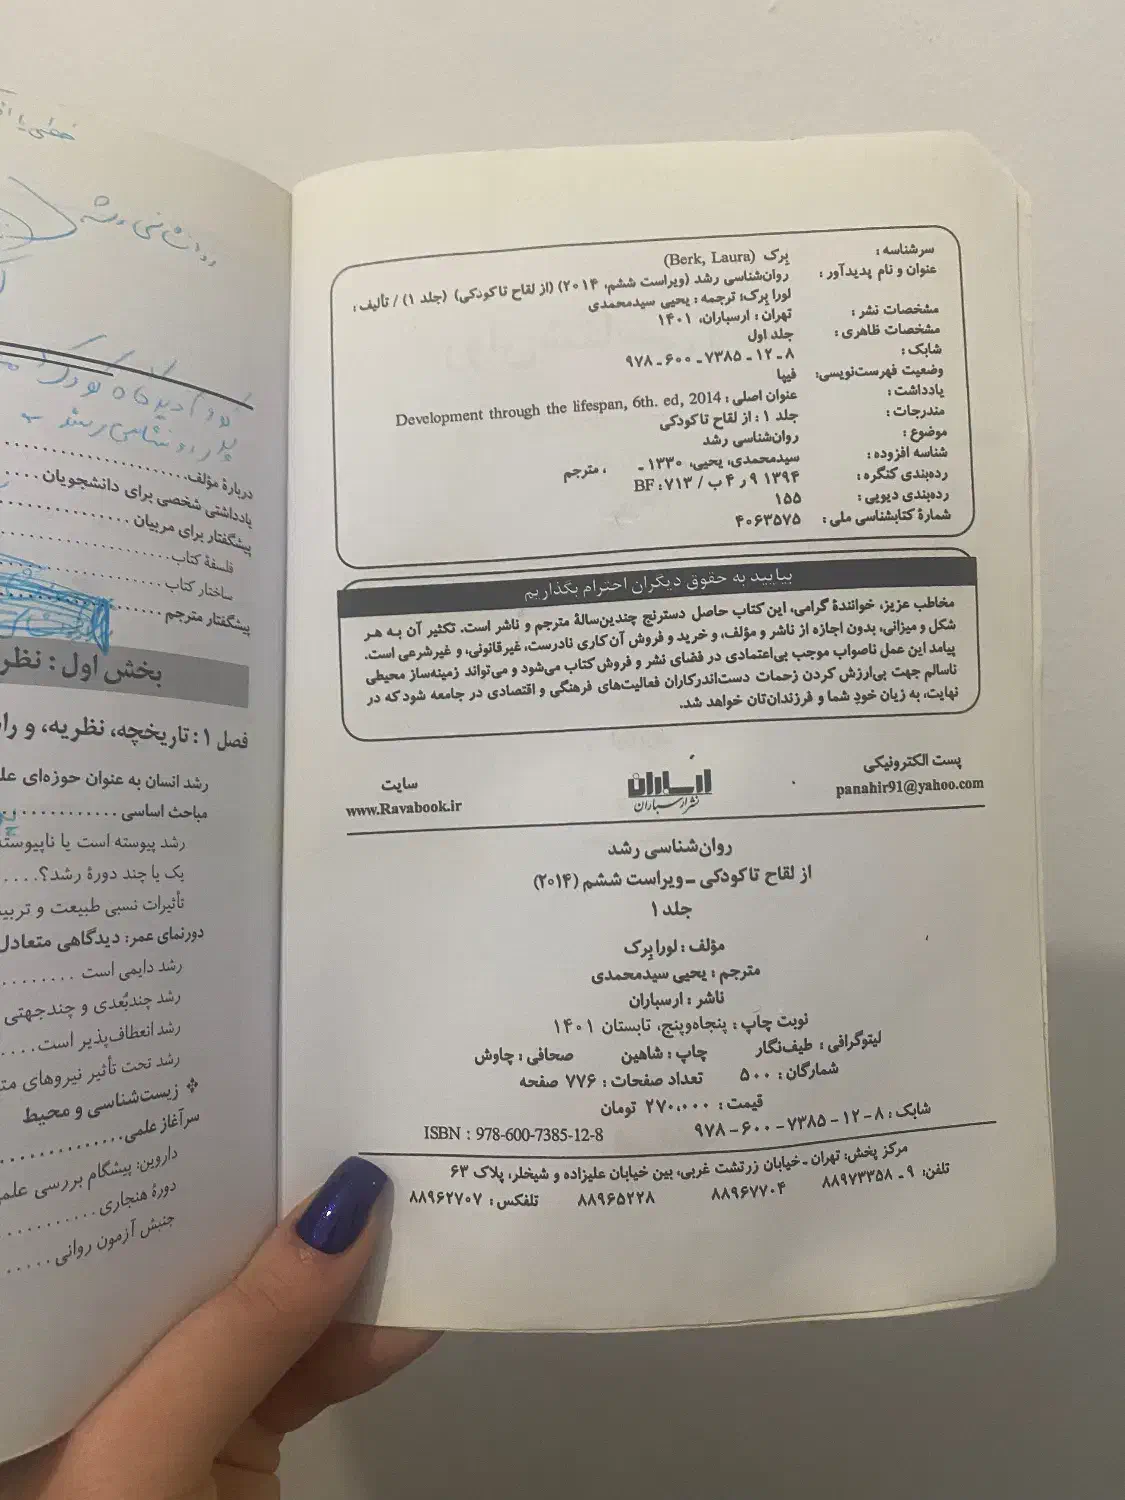 سرشناسه : بِرک (Berk, Laura)
عنوان و نام پدیدآور : روان‌شناسی رشد (ویراست ششم، ۲۰۱۴) (از لقاح تا کودکی) (جلد ۱) / تألیف :
لورا بِرک؛ ترجمه : یحیی سیدمحمدی
مشخصات نشر : تهران : ارسباران، ۱۴۰۱
مشخصات ظاهری : جلد اول
شابک : ۸ ـ ۱۲ ـ ۷۳۸۵ ـ ۶۰۰ ـ ۹۷۸
وضعیت فهرست‌نویسی: فیپا
یادداشت : عنوان اصلی : Development through the lifespan, 6th. ed, 2014
مندرجات : جلد ۱ : از لقاح تا کودکی
موضوع : روان‌شناسی رشد
شناسه افزوده : سیدمحمدی، یحیی، ۱۳۳۰ ـ ، مترجم
رده‌بندی کنگره : ۱۳۹۴ ۹ ر ۴ ب / ۷۱۳ : BF
رده‌بندی دیویی : ۱۵۵
شمارهٔ کتابشناسی ملی : ۴۰۶۳۵۷۵
بیایید به حقوق دیگران احترام بگذاریم
مخاطب عزیز، خوانندهٔ گرامی، این کتاب حاصل دسترنج چندین‌سالهٔ مترجم و ناشر است. تکثیر آن به هر
شکل و میزانی، بدون اجازه از ناشر و مؤلف، و خرید و فروش آن کاری نادرست، غیرقانونی، و غیرشرعی است.
پیامد این عمل ناصواب موجب بی‌اعتمادی در فضای نشر و فروش کتاب می‌شود و می‌تواند زمینه‌ساز محیطی
ناسالم جهت بی‌ارزش کردن زحمات دست‌اندرکاران فعالیت‌های فرهنگی و اقتصادی در جامعه شود که در
نهایت، به زیان خودِ شما و فرزندان‌تان خواهد شد.
پست الکترونیکی
panahir91@yahoo.com
ارسباران
نشر ارسباران
سایت
www.Ravabook.ir
روان‌شناسی رشد
از لقاح تا کودکی ـ ویراست ششم (۲۰۱۴)
جلد ۱
مؤلف : لورا بِرک
مترجم : یحیی سیدمحمدی
ناشر : ارسباران
نوبت چاپ : پنجاه‌وپنج، تابستان ۱۴۰۱
لیتوگرافی : طیف‌نگار چاپ : شاهین صحافی : چاوش
شمارگان : ۵۰۰ تعداد صفحات : ۷۷۶ صفحه
قیمت : ۲۷۰،۰۰۰ تومان
شابک : ۸ – ۱۲ – ۷۳۸۵ – ۶۰۰ – ۹۷۸ ISBN : 978-600-7385-12-8
مرکز پخش: تهران ـ خیابان زرتشت غربی، بین خیابان علیزاده و شیخلر، پلاک ۶۳
تلفن: ۹ ـ ۸۸۹۷۳۳۵۸ ۸۸۹۶۷۷۰۴ ۸۸۹۶۵۲۲۸ تلفکس : ۸۸۹۶۲۷۰۷
دربارهٔ مؤلف
یادداشتی شخصی برای دانشجویان
پیشگفتار برای مربیان
فلسفهٔ کتاب
ساختار کتاب
پیشگفتار مترجم
بخش اول : نظر
فصل ۱ : تاریخچه، نظریه، و را
رشد انسان به عنوان حوزه‌ای عل
مباحث اساسی
رشد پیوسته است یا ناپیوسته
یک یا چند دورهٔ رشد؟
تأثیرات نسبی طبیعت و تربی
دورنمای عمر: دیدگاهی متعادل
رشد دایمی است
رشد چندبُعدی و چندجهتی
رشد انعطاف‌پذیر است
رشد تحت تأثیر نیروهای مت
❖ زیست‌شناسی و محیط
سرآغاز علمی
داروین: پیشگام بررسی علمی
دورهٔ هنجاری
جنبش آزمون روانی